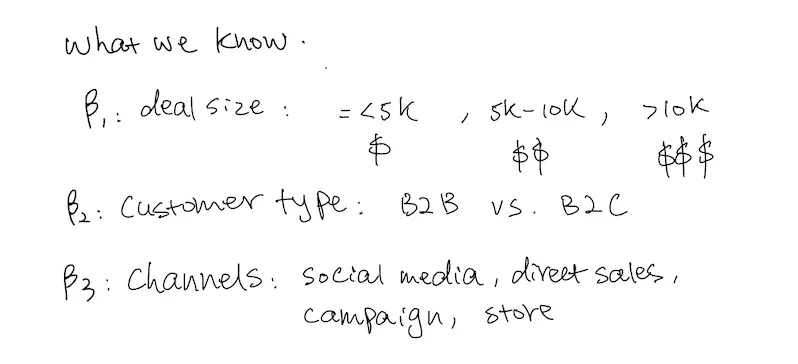 What we know.
β₁: deal size: =<5K, 5K-10K, >10K
$ $$ $$$
β₂: Customer type: B2B vs. B2C
β₃: Channels: social media, direct sales,
campaign, store